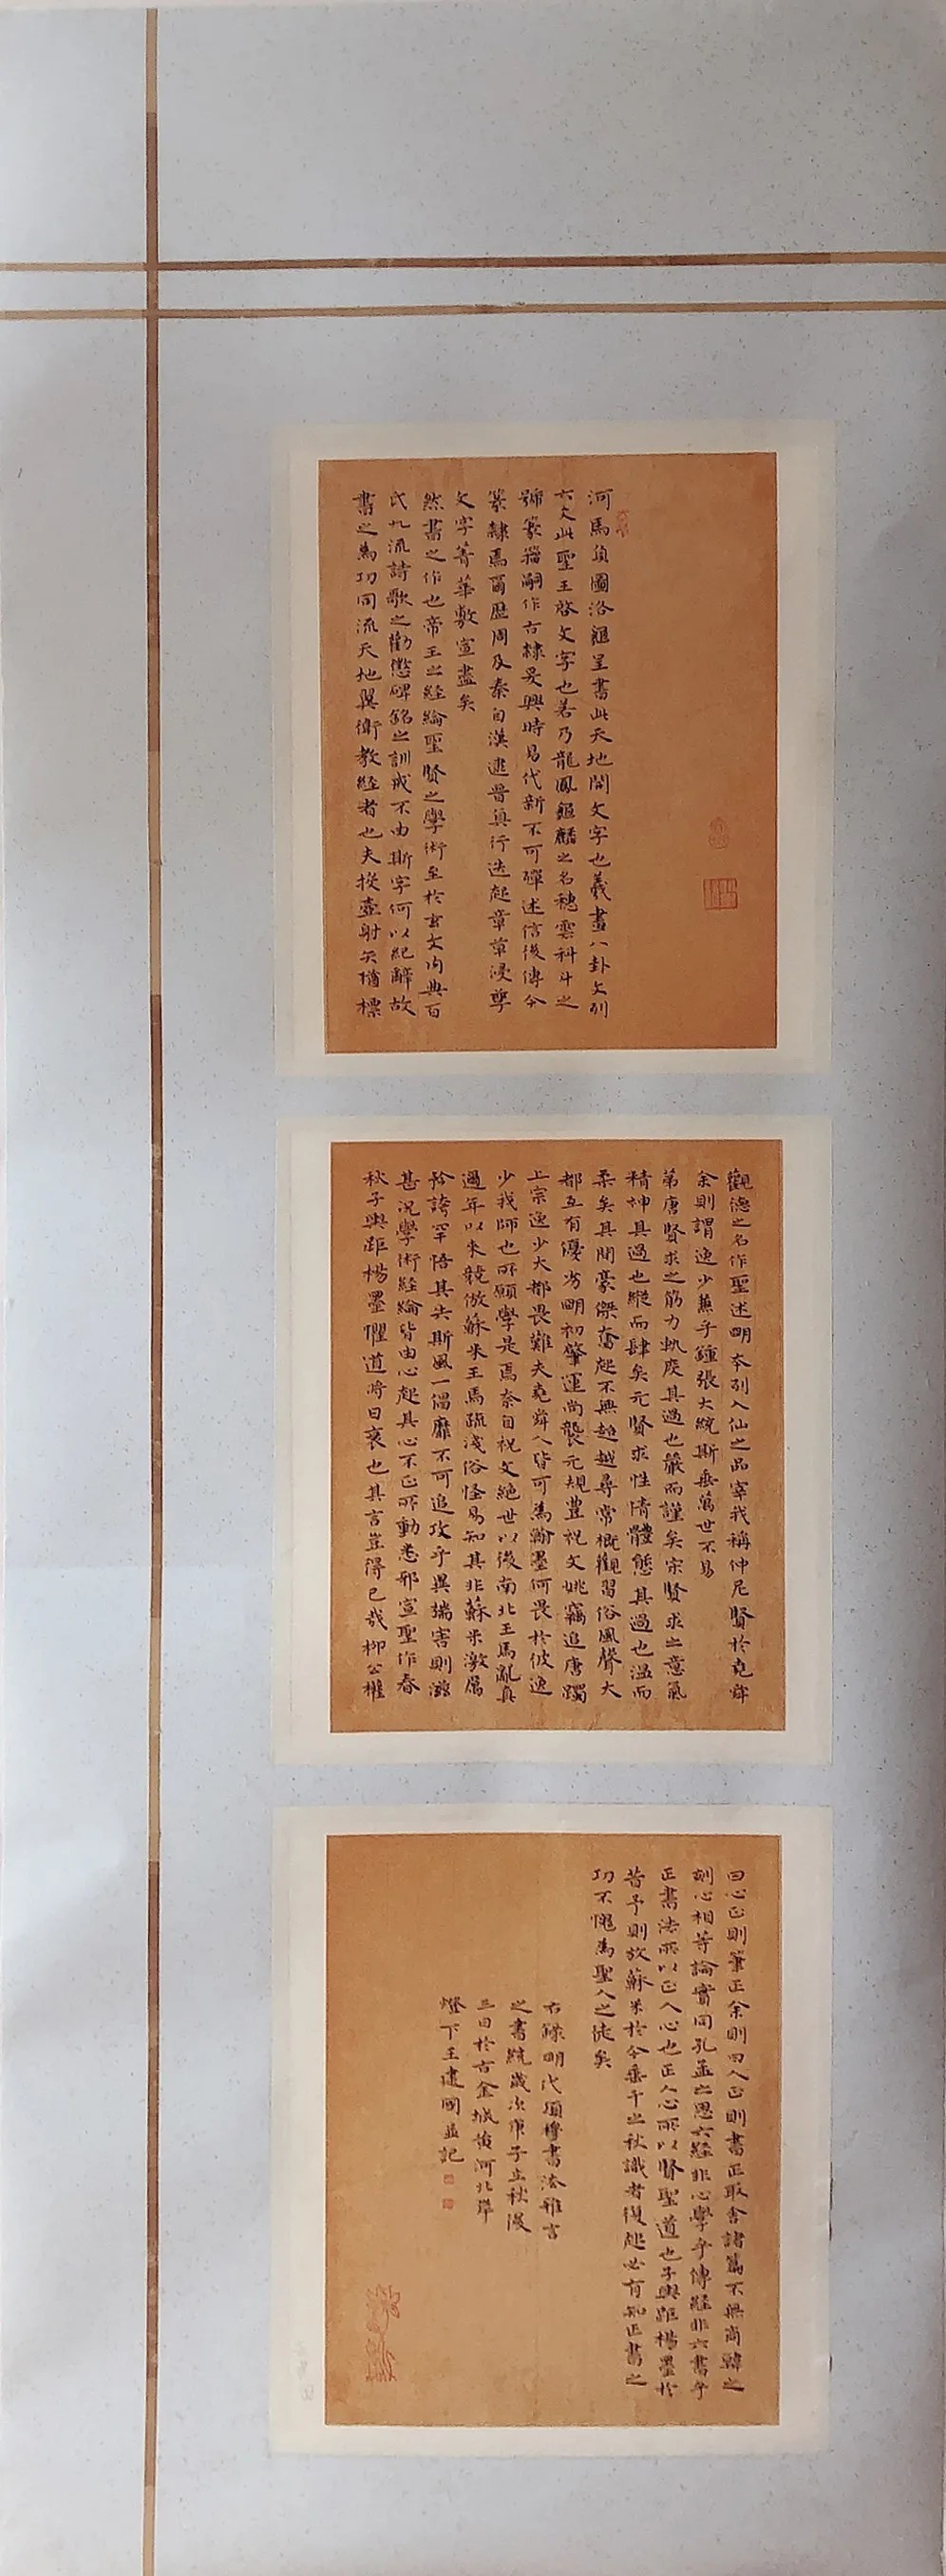 河馬負圖洛龜呈書此天地開文字也羲畫八卦文列
六爻此聖王啓文字也若乃龍鳳龜麟之名穗雲科斗之
號篆籀嗣作古隸爰興時易代新不可殫述信後傳今
篆隸焉爾歷周及秦自漢逮晉真行迭起章草浸孳
文字菁華敷宣盡矣
然書之作也帝王之經綸聖賢之學術至於玄文內典百
氏九流詩歌之勸懲碑銘之訓戒不由斯字何以紀辭故
書之為功同流天地翼衛教經者也夫投壺射矢猶標
觀德之名作聖述明本列入仙之品宰我稱仲尼賢於堯舜
余則謂逸少兼乎鍾張大統斯垂萬世不易
第唐賢求之筋力軌度其過也嚴而謹矣宋賢求之意氣
精神其過也縱而肆矣元賢求性情體態其過也溫而
柔矣其間豪傑奮起不無超越尋常概觀習俗風聲大
都互有優劣明初肇運尚襲元規豐祝文姚竊追唐躅
上宗逸少大都畏難夫堯舜人皆可為翰墨何畏於彼逸
少我師也所願學是焉奈自祝文絕世以後南北王馬亂真
邇年以來競倣蘇米王馬疏淺俗怪易知其非蘇米激厲
矜誇罕悟其失斯風一倡靡不可追攻乎異端害則滋
甚況學術經綸皆由心起其心不正所動悉邪宣聖作春
秋子輿距楊墨懼道將日衰也其言豈得已哉柳公權
曰心正則筆正余則曰人正則書正取舍諸篇不無商韓之
刻心相等論實同孔孟之思六經非心學乎傳經非六書乎
正書法所以正人心也正人心所以賢聖道也子輿距楊墨於
昔予則放蘇米於今垂千之秋識者復起必有知正書之
功不愧為聖人之徒矣
右錄明代項穆書法雅言
之書統歲次庚子立秋後
三日於古金城黃河北岸
燈下王建國並記